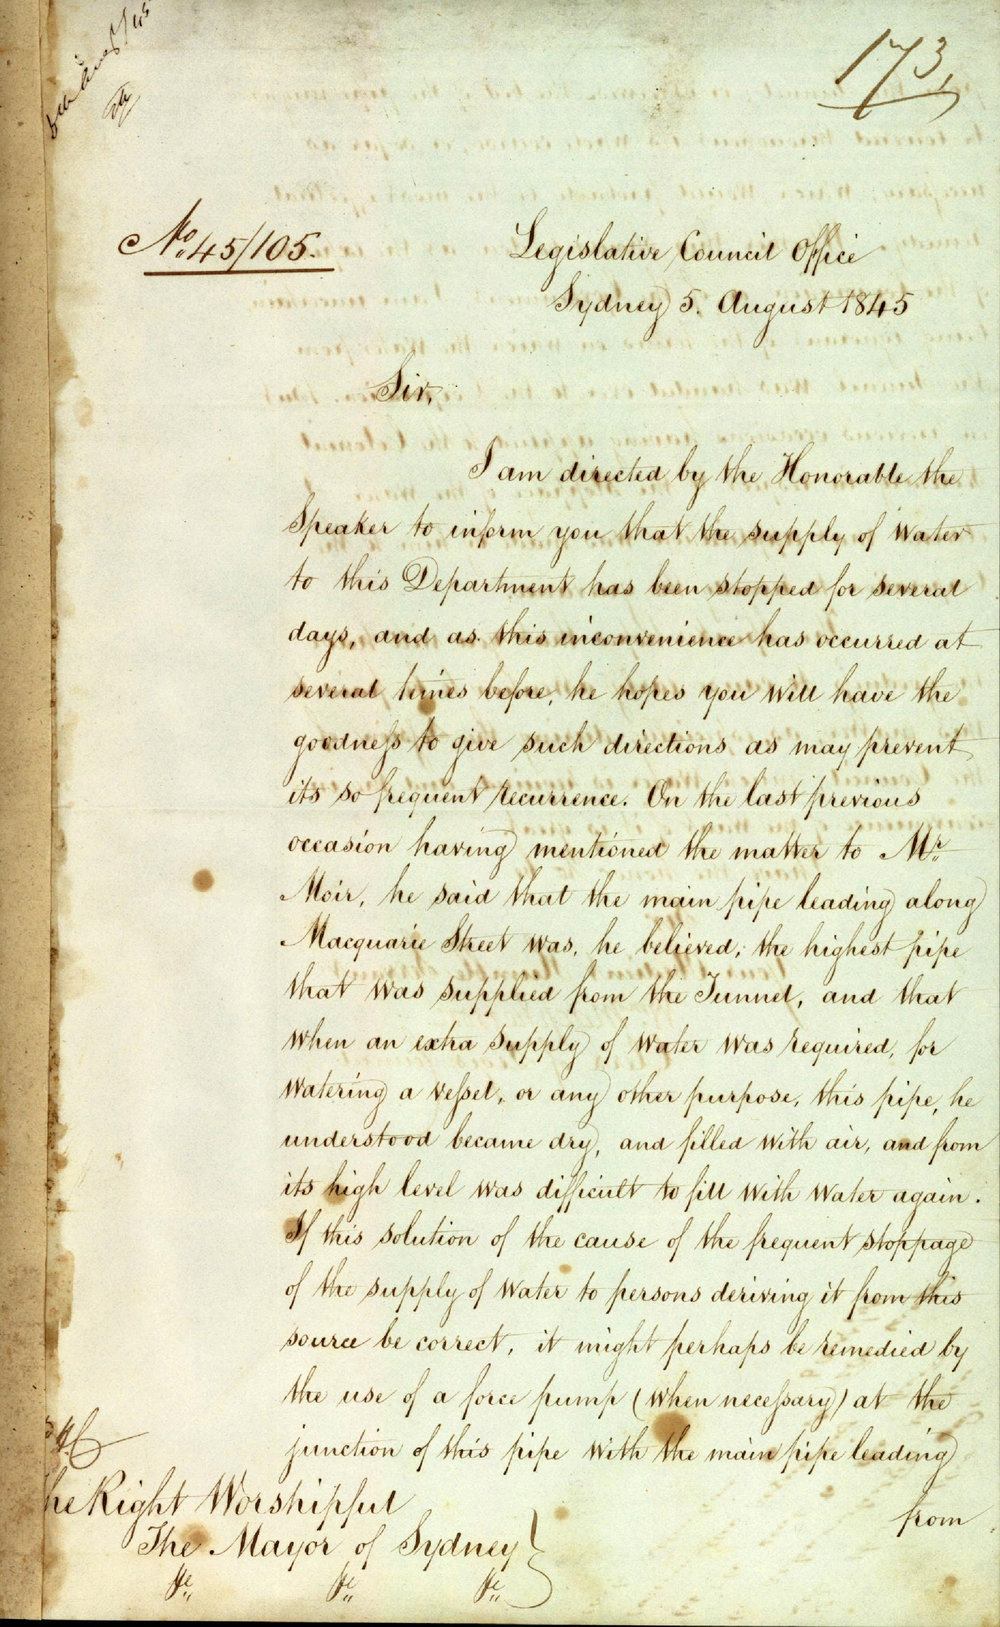 173,
No. 45/105.
Legislative Council Office
Sydney 5. August 1845
Sir,
I am directed by the Honorable the
Speaker to inform you that the supply of Water
to this Department has been stopped for several
days, and as this inconvenience has occurred at
several times before, he hopes you will have the
goodness to give such directions as may prevent
its so frequent recurrence. On the last previous
occasion having mentioned the matter to Mr.
Moir, he said that the main pipe leading along
Macquarie Street was, he believed, the highest pipe
that was supplied from the Tunnel, and that
when an extra supply of water was required, for
watering a vessel, or any other purpose, this pipe, he
understood became dry, and filled with air, and from
its high level was difficult to fill with water again.
If this solution of the cause of the frequent stoppage
of the supply of Water to persons deriving it from this
source be correct, it might perhaps be remedied by
the use of a force pump (when necessary) at the
junction of this pipe with the main pipe leading
from
he Right Worshipful
The Mayor of Sydney
&c. &c. &c.